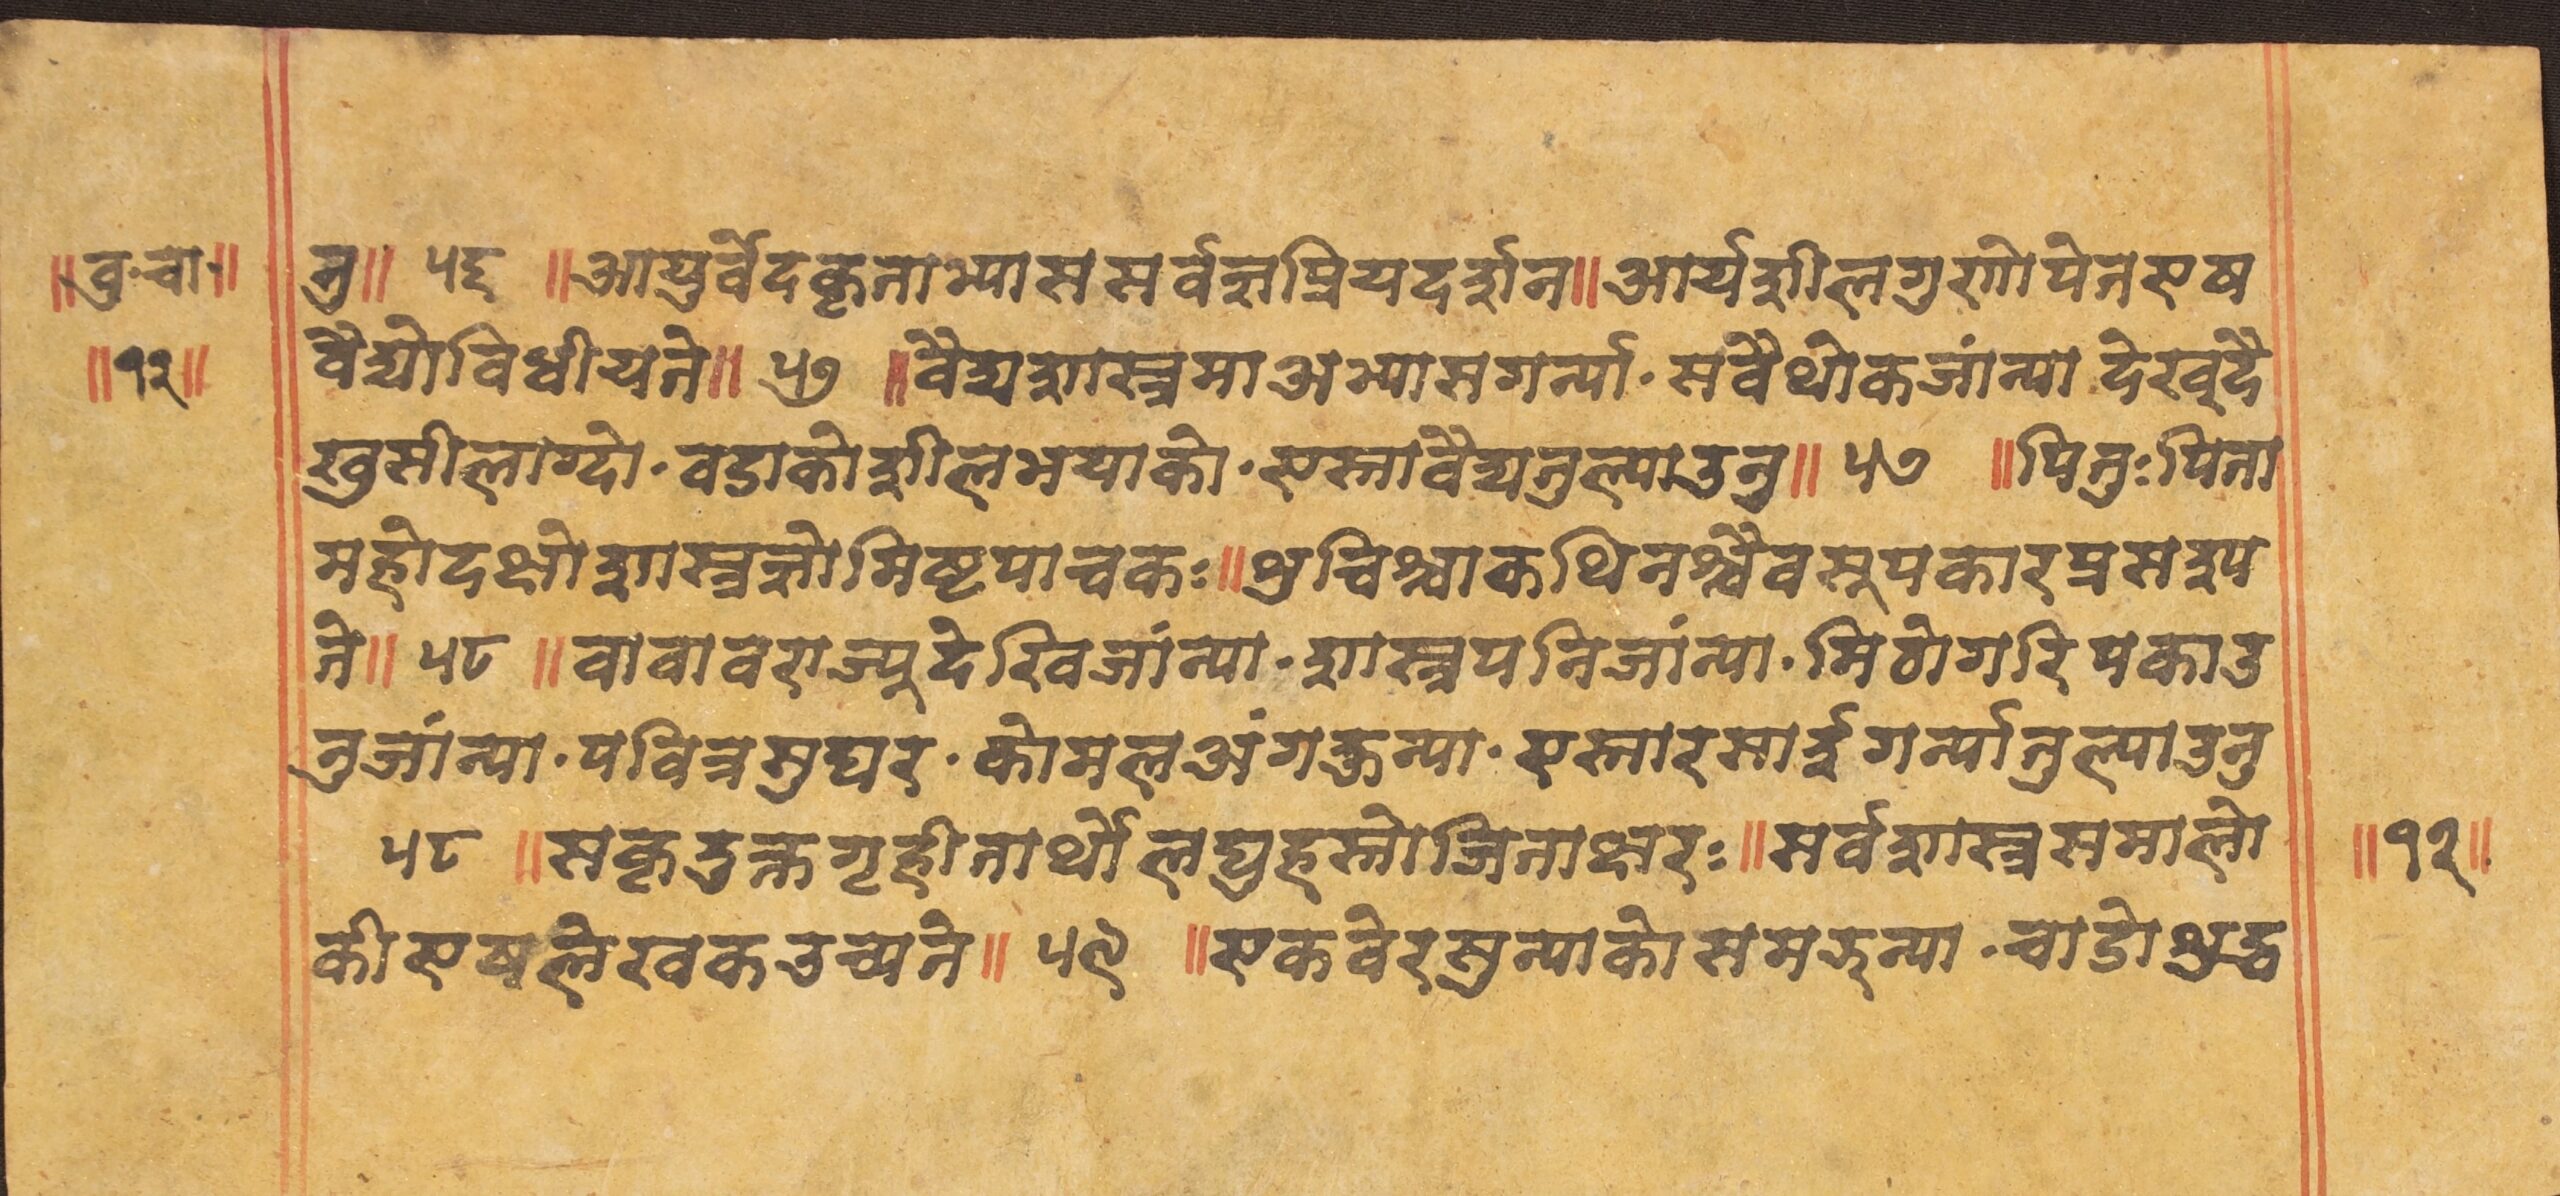 ॥वु·चा·॥ नु॥ ५६ ॥आयुर्वेदकृताभ्याससर्वज्ञप्रियदर्शन॥आर्यशीलगुणोपेतएष
॥१२॥ वैद्योविधीयते॥ ५७ ॥वैद्यशास्त्रमाअभ्यासगर्न्या·सवैथोकजांन्या देख्दै
खुसीलाग्दो·वडाकोशीलभयाको·एस्तावैद्यतुल्याउनु॥ ५७ ॥पितुःपिता
महोदक्षोशास्त्रज्ञोमिष्टपाचकः॥श्रुचिश्चाकथितश्चैवसूपकारप्रसश्य
ते॥ ५८ ॥वावावराज्यूदेखिजांन्या·शास्त्रपनिजांन्या·मिठोगरिपकाउ
नुजांन्या·पवित्रसुघर·कोमलअंगरुन्या·एस्तारसाईगर्न्यातुल्याउनु
५८ ॥सकृदुक्तगृहीतार्थोलघुहस्तोजिताक्षरः॥सर्वशास्त्रसमालो ॥१२॥
कीएषलेखकउच्यते॥ ५९ ॥एकवेरसुन्याकोसमझन्या·चाडोश्रुद्ध